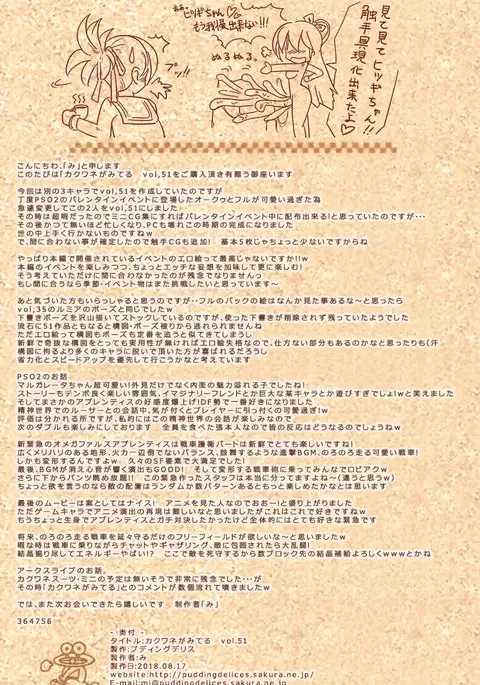 見て見てヒツギちゃん!!
触手具現化出来たよ♡
ぬるぬる。
ヒツギちゃん♡
もう我慢出来ない!!!
ブッ!!
こんにちわ、「み」と申します
このたびは「カクワネがみてる　vol,51をご購入頂き有難う御座います
今回は別の3キャラでvol,51を作成していたのですが
丁度PSO2のバレンタインイベントに登場したオークゥとフルが可愛い過ぎた為
急遽変更してこの2人をvol,51にしました
その時は超暇だったのでミニCG集にすればバレンタインイベント中に配布出来る!と思っていたのですが・・・
その後かつて無いほど忙しくなり、PCも壊れこの時期の完成になりました
世の中上手く行かないものですねw
で、間に合わない事が確定したので触手CGも追加!　基本5枚じゃちょっと少ないですからね
やっぱり本編で開催されているイベントのエロ絵って最高じゃないですか!!w
本編のイベントを楽しみつつ、ちょっとエッチな妄想を加味して更に楽しむ!
そう考えていただけに間に合わなかったのが残念でなりませんっ
もし間に合うなら季節・イベント物はまた挑戦したいと思います～
あと気づいた方もいらっしゃると思うのですが・・フルのバックの絵はなんか見た事あるな～と思ったら
vol,35のルミアのポーズと同じでしたw
下書きポーズを沢山描いてストックしているのですが、使った下書きが削除されず残っていたようでした
流石に51作品ともなると構図・ポーズ被りから逃れられませんね
ただエロ絵って構図もポーズも定番を追うと似てきてしまうし
新鮮で奇抜な構図をとっても実用性が無ければエロ絵失格なので、仕方ない部分もあるのかなと思ったりも(汗
構図に拘るより多くのキャラに脱いで頂いた方が喜ばれるだろうし
省力化とスピードアップを優先して行こうかなと考えています
PSO2のお話。
マルガレータちゃん超可愛い!外見だけでなく内面の魅力溢れる子でしたね!
ストーリーもテンポ良く楽しい雰囲気、イマジナリーフレンドとか巨大な某キャラとか遊びすぎでしょ!wと笑えました
そしてまさかのアプレンティスの好感度爆上げ!DF勢で一番好きになりました
精神世界でのルーサーとの会話中、気が付くとプレイヤーに引っ付くの可愛い過ぎ!w
評価は分かれる所ですが、私的にはこの精神世界の会話が楽しみなので
次のダブルも楽しみにしております　全員を食べた張本人なので皆の反応はどうなるのでしょねw
新緊急のオメガファルスアプレンティスは戦車護衛パートは新鮮でとても楽しいですね!
広くメリハリのある地形、火力一辺倒でないバランス、鼓舞するような進撃BGM、のろのろ走る可愛い戦車!
しかも変形するんですよw　久々のSF要素で大満足でした!
最後、BGMが消え心音が響く演出もGOOD!　そして変形する戦車砲に乗ってみんなでロビアクw
さらに下からパンツ眺め放題!!　この緊急作ったスタッフは本当に分ってますよね～(違うと思うw)
ちょっと欲を言うのなら敵の配置はランダムか数パターンあるともっと楽しめたかなとは思います
最後のムービーは案としてはナイス!　アニメを見た人なのでおおーっと盛り上がりました
ただゲームキャラでアニメ演出の再現は難しいなと思いましたがこれはこれで好きですねw
もうちょっと生身でアプレンティスとガチ対決したかったけど全体的にはとても好きな緊急です
将来、のろのろ走る戦車を延々守るだけのフリーフィールドが欲しいな～と思いましたw
暇な時は戦車に乗りながらチャットやギャザリング、敵に包囲されたら大乱闘!
結晶掘り尽してエネルギーやばい!?　ここで敵を死守するから数ブロック先の結晶補給よろしくwwwとかね
アークスライブのお話。
カクワネスーツ・ミニの予定は無いそうで非常に残念でした・・・が
その時「カクワネがみてる」とのコメントが数個流れて噴きましたw
では、また次お会いできたら嬉しいです　制作者「み」
364756
- 奥付 -
タイトル:カクワネがみてる　vol.51
製作:プティングデリス
製作:み
製作日:2018.08.17
website:http://puddingdelices.sakura.ne.jp/
E-mail:mi@puddingdelices.sakura.ne.jp